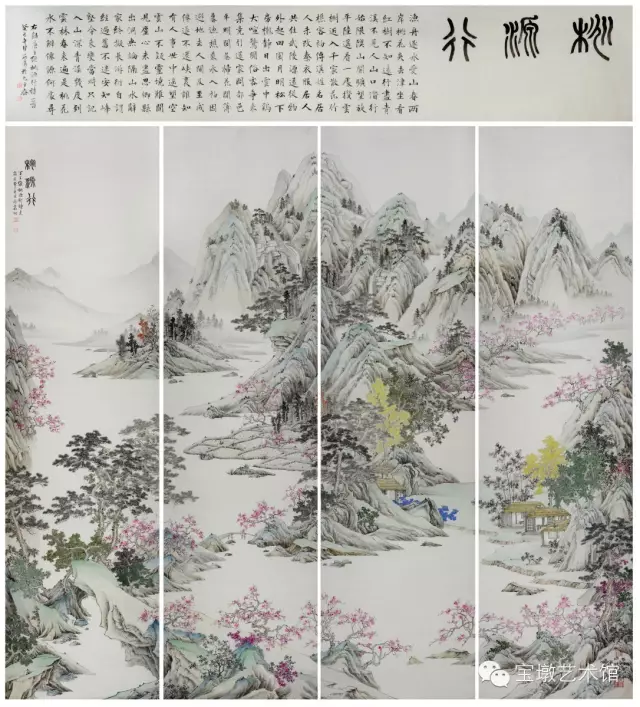 桃源行
漁舟逐水愛山春兩
岸桃花夾去津坐看
紅樹不知遠行盡青
溪不見人山口潛行
始隈隩山開曠望旋
平陸遙看一處攢雲
樹近入千家散花竹
樵客初傳漢姓名居
人未改秦衣服居人
共住武陵源還從物
外起田園月明松下
房櫳靜日出雲中雞
犬喧驚聞俗客爭來
集競引還家問都邑
平明閭巷掃花開薄
暮漁樵乘水入初因
避地去人間及至成
仙遂不還峽裏誰知
有人事世中遙望空
雲山不疑靈境難聞
見塵心未盡思鄉縣
出洞無論隔山水辭
家終擬長游衍自謂
經過舊不迷安知峰
壑今來變當時只記
入山深青溪幾度到
雲林春來遍是桃花
水不辨仙源何處尋
右錄唐王維桃源行詩
桃源行
宝墩艺术馆